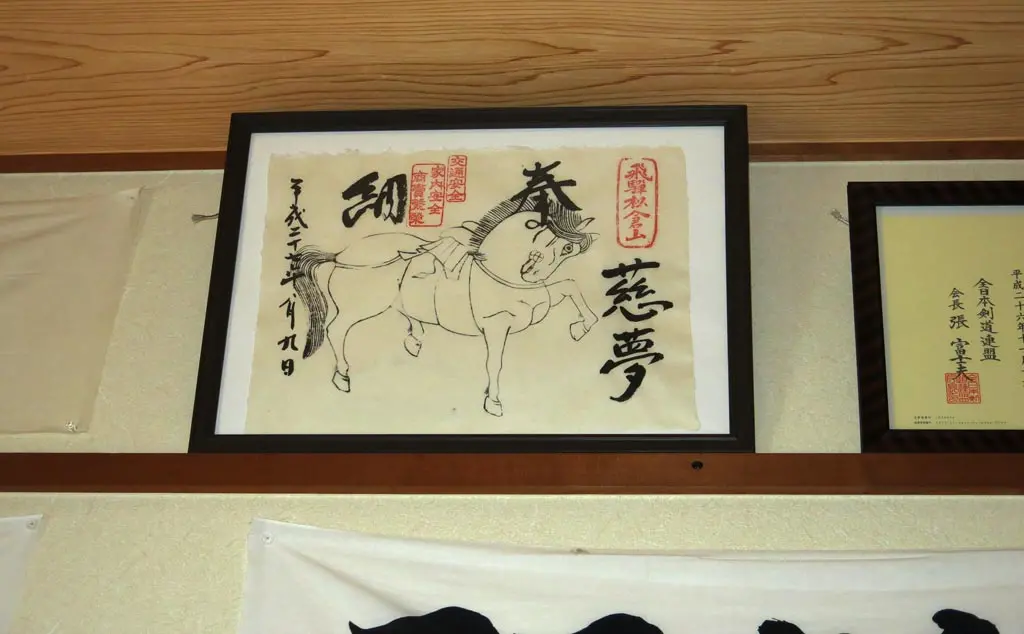 飛驒松倉山
慈夢
奉納
交通安全
家内安全
商賣繁榮
平成二十七年八月九日
平成二十六年十
全日本剣道連盟
会長 張 富士夫